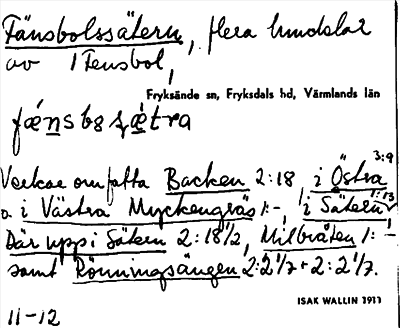 Tänsbolssätern, flera hundelar
av 1 Tensbol,
Fryksände sn, Fryksdals hd, Värmlands län
fǽnsbɞsǽtra
Verkar omfatta Backen 2:18, i Östra 3:9
o i Västra Myckengräs 1:-, i Sätern 1:13,
Där uppi Sätern 2:18 1/2, Milbråten 1:-
samt Rönningsängen 2:2 1/7 + 2:2 1/7.
ISAK WALLIN 1933
11-12